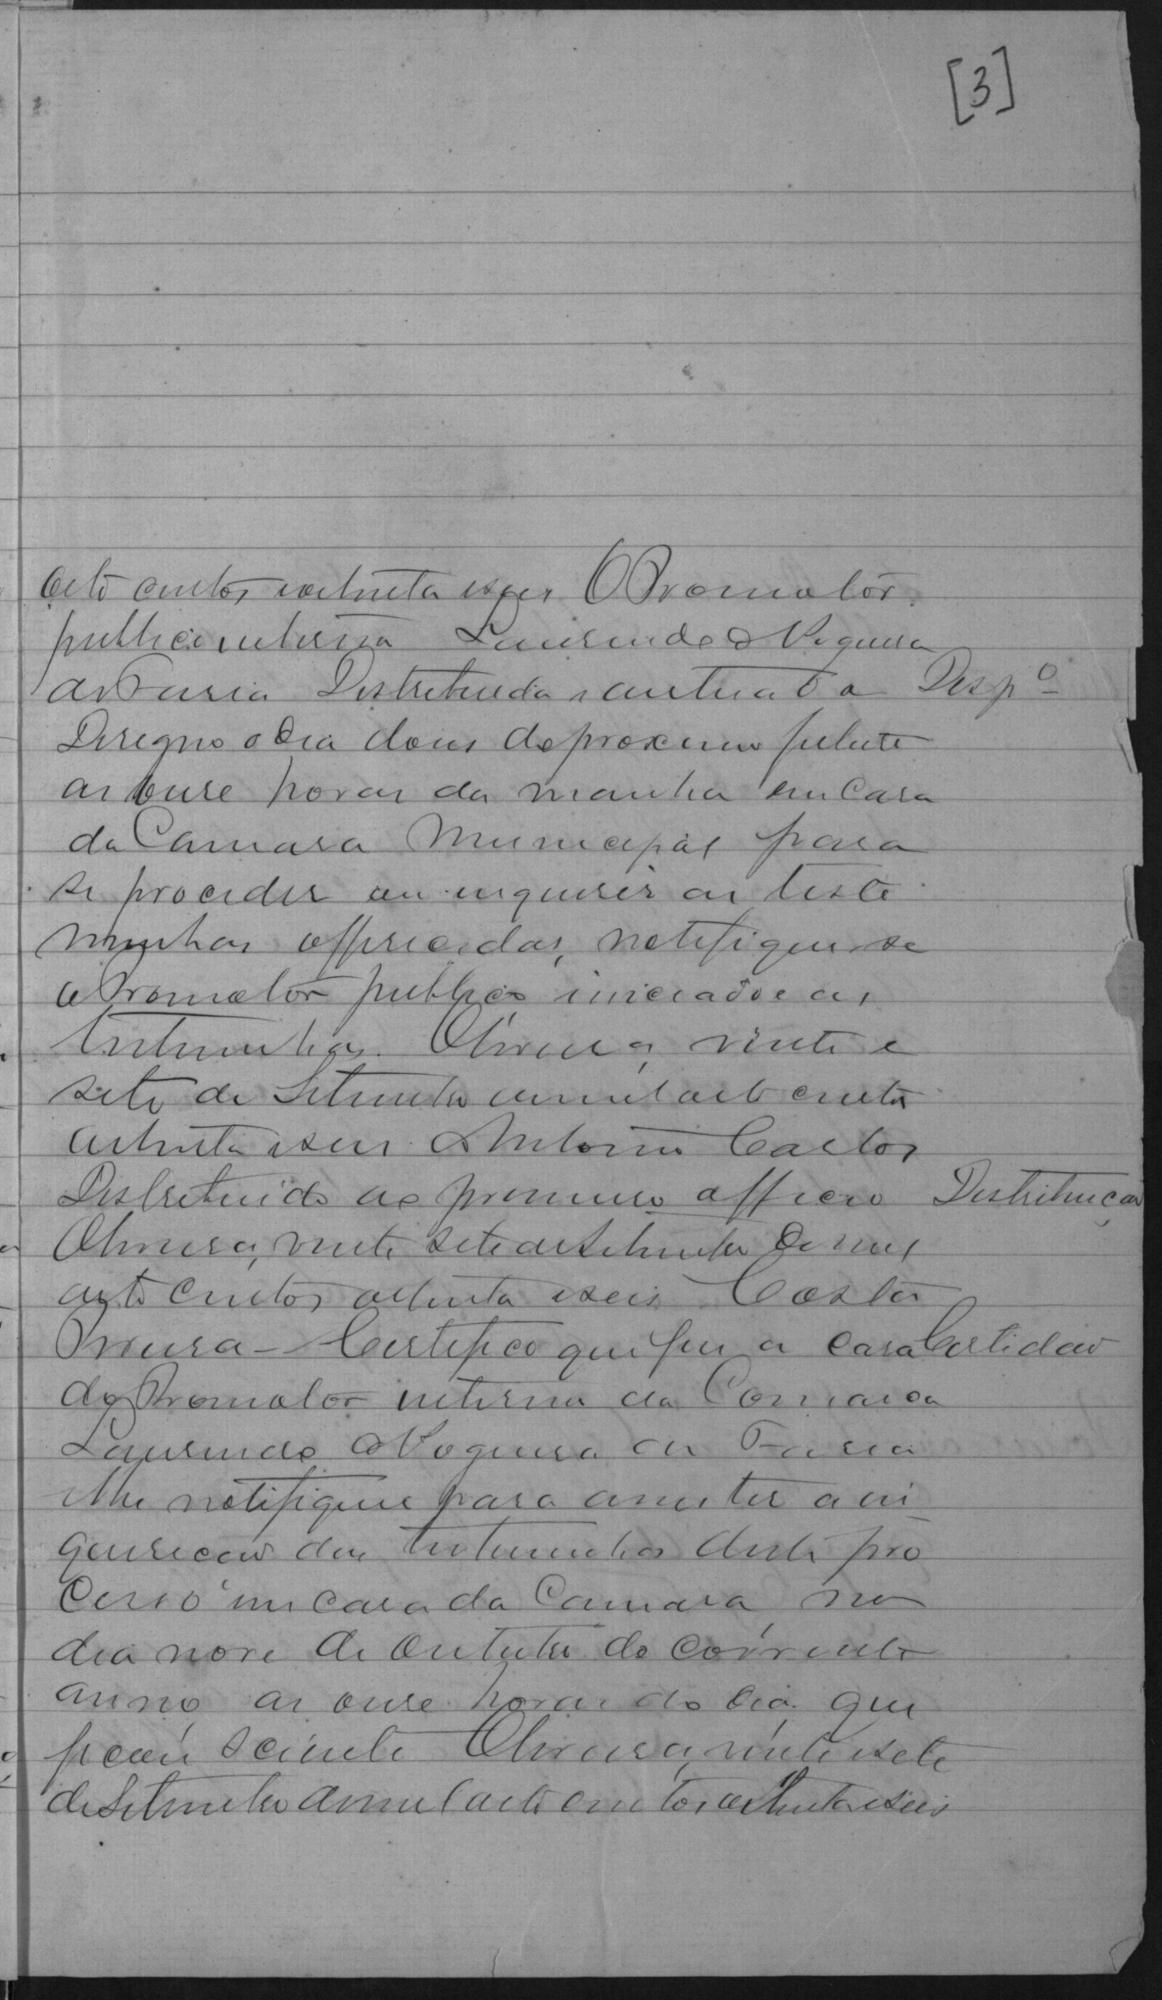 [3]
oito centos e oitenta e seis O Promotor
publico interino Laurindo Nogueira
de Faria Distribuida e autuada Desp.º
Designo o dia dous do proximo futuro
as onse horas da manha em Casa
da Camara Municipal para
se proceder ao inquerir as teste
munhas offerecidas, notifique se
o Promotor publico e as
testemunhas. Oliveira, vinte e
sete de Setembro de mil oito centos
oitenta e seis Antonio Carlos
Distribuido ao primeiro officio Distribuiçao
Oliveira, vinte sete de Setembro de mil
oito centos oitenta e seis Costa
Certifico que fui a casa Certidao
do Promotor interino da Comarca
Laurindo Nogueira de Faria
e lhe notifiquei para assistir a in
quiricao das testemunhas deste pro
cesso em casa da Camara no
dia nove de Outubro do corrente
anno as onse horas do dia que
ficou sciente Oliveira, vinte e sete
de Setembro de mil oito centos oitenta e seis